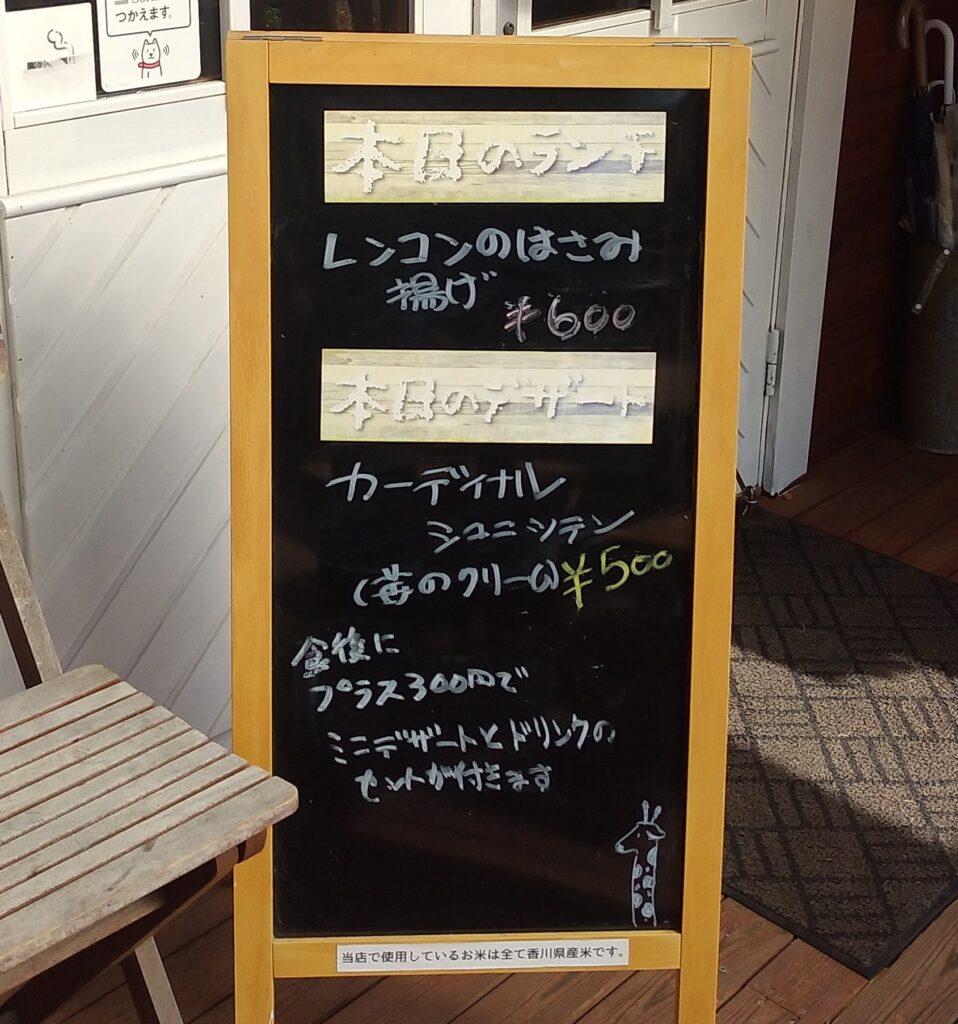 つかえます。
本日のランチ
レンコンのはさみ
揚げ
¥600
本日のデザート
カーディナル
シュニッテン
(苺のクリーム) ¥500
食後に
プラス300円で
ミニデザートとドリンクの
セットが付きます
当店で使用しているお米は全て香川県産米です。